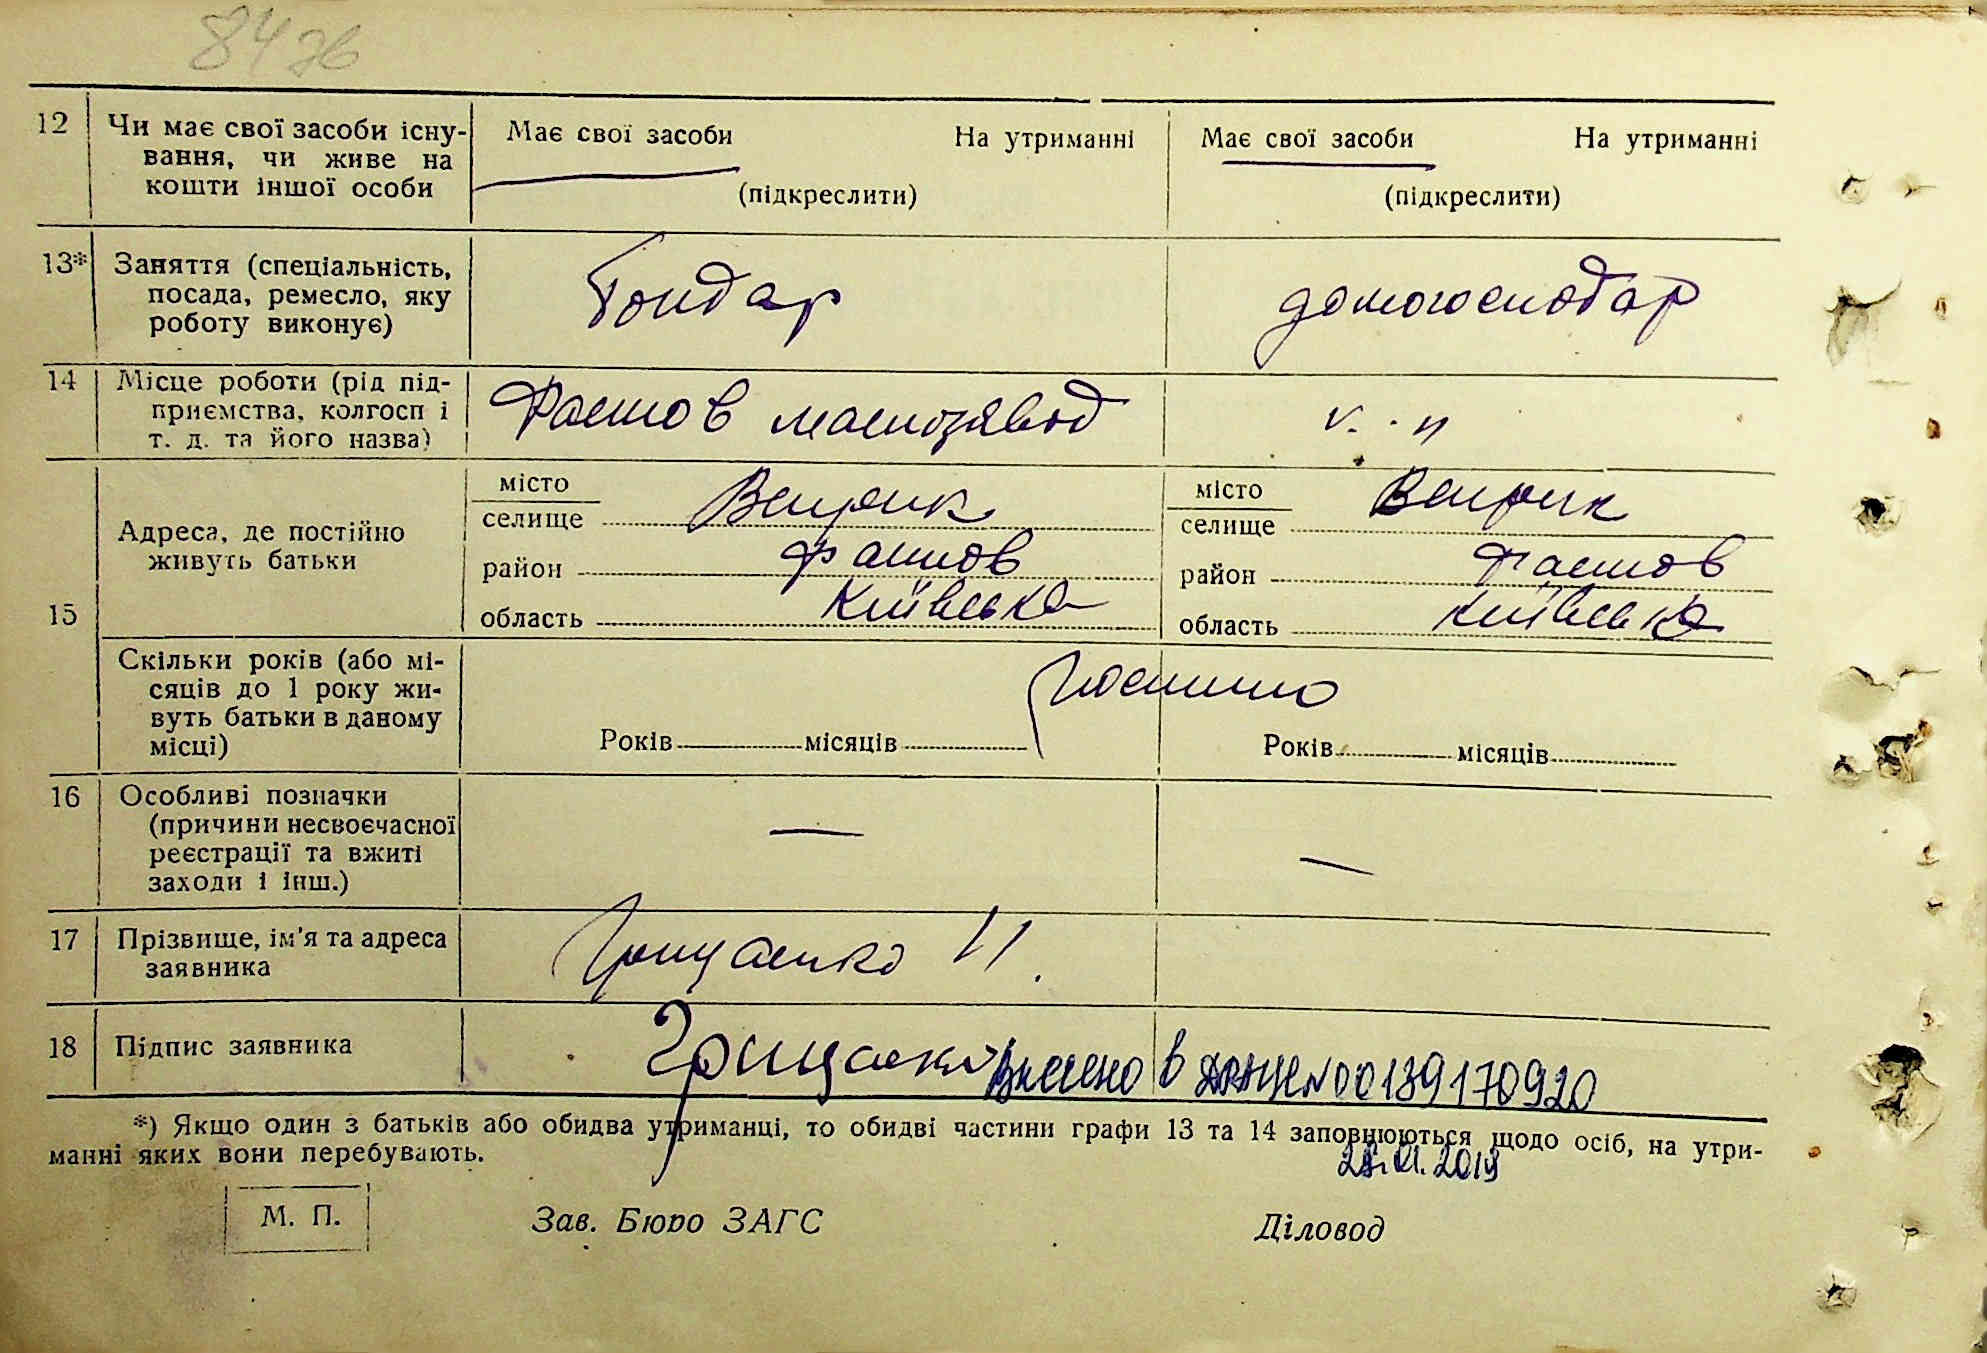 12 Чи має свої засоби існу-
вання, чи живе на
кошти іншої особи
Має свої засоби На утриманні
(підкреслити)
Має свої засоби На утриманні
(підкреслити)
13* Заняття (спеціальність,
посада, ремесло, яку
роботу виконує)
Бондар
домогосподар
14 Місце роботи (рід під-
приємства, колгосп і
т. д. та його назва)
Фастов маслозавод
15
Адреса, де постійно
живуть батьки
місто
селище Веприк
район Фастов
область Київська
місто
селище Веприк
район Фастов
область Київська
Скільки років (або мі-
сяців до 1 року жи-
вуть батьки в даному
місці)
постино
Років місяців
Років місяців
16 Особливі позначки
(причини несвоєчасної
реєстрації та вжиті
заходи і інш.)
—
—
17 Прізвище, ім'я та адреса
заявника
Грищенко И.
18 Підпис заявника
Грищенко
Внесено в ДРАЦС N00139170920
*) Якщо один з батьків або обидва утриманці, то обидві частини графи 13 та 14 заповнюються щодо осіб, на утри-
манні яких вони перебувають.
М. П.
Зав. Бюро ЗАГС
Діловод